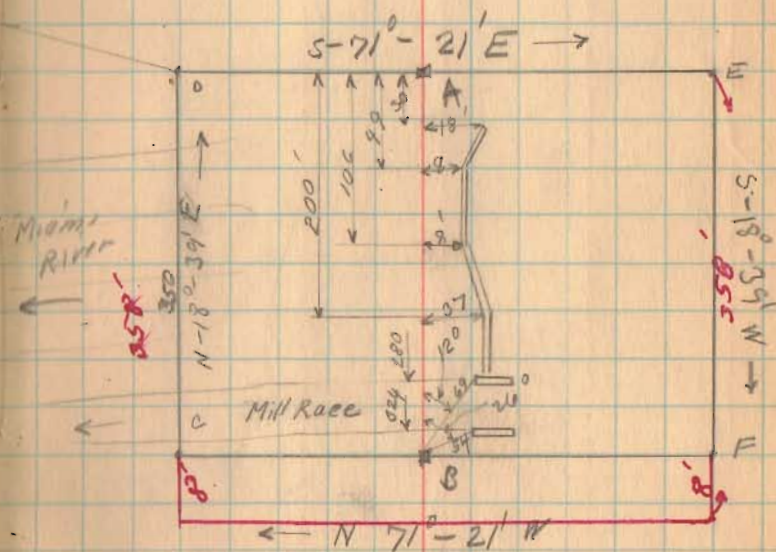 S-71°-21' E →
D
A
E
30
99
106
200'
18
9
8'
N-18°-39' E →
350
358'
Miami
River
S-18°-39' W →
358'
120
280
024
69
26
54
0
Mill Race
C
B
F
8'
8'
← N 71°-21' W